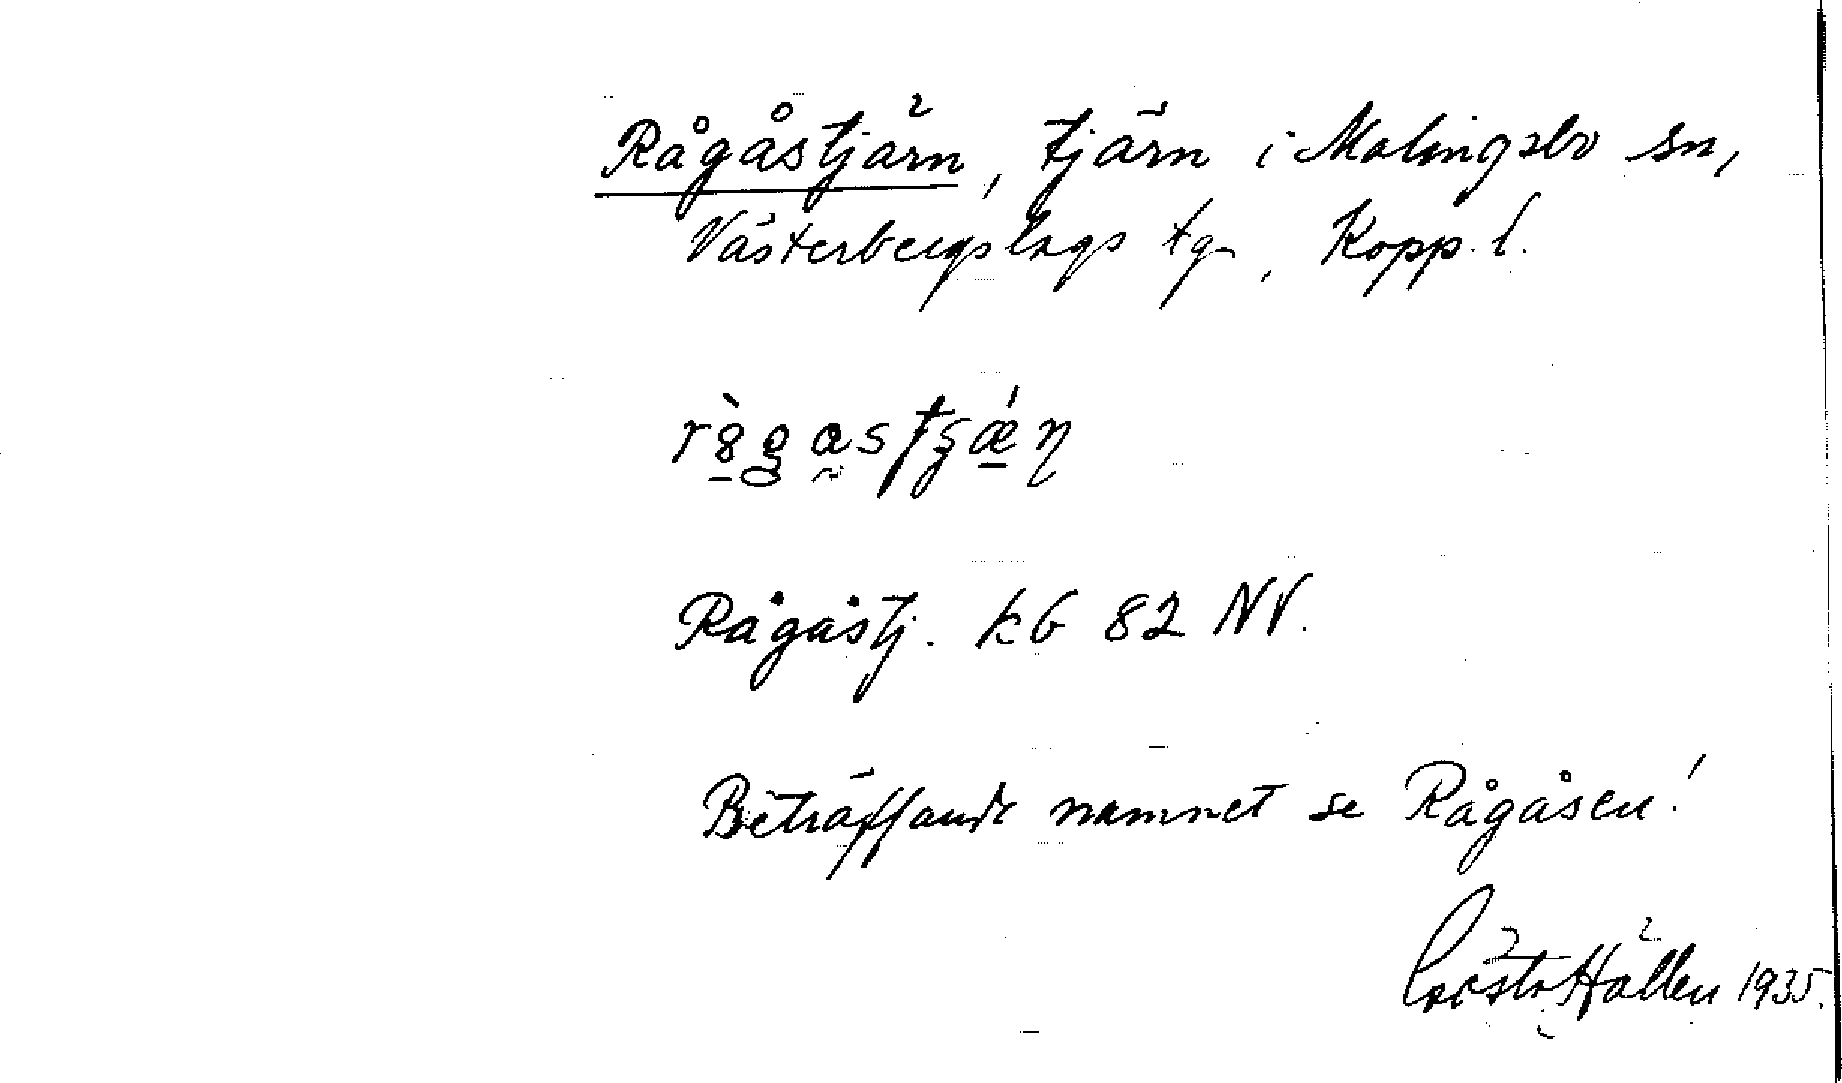 Rågåstjärn, tjärn i Malingsbo sn,
Västerbergslags tg, Kopp. l.
Rågåstj. kb 82 NV.
Beträffande namnet se Rågåsen!
Gösta Hällen 1935.